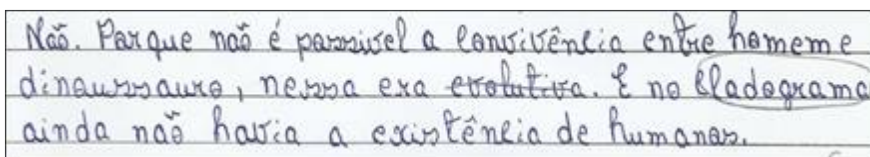 Não. Porque não é possivel a convivência entre homem e
dinaussauro, nessa era evolutiva. E no Cladograma
ainda não havia a existência de humanos.